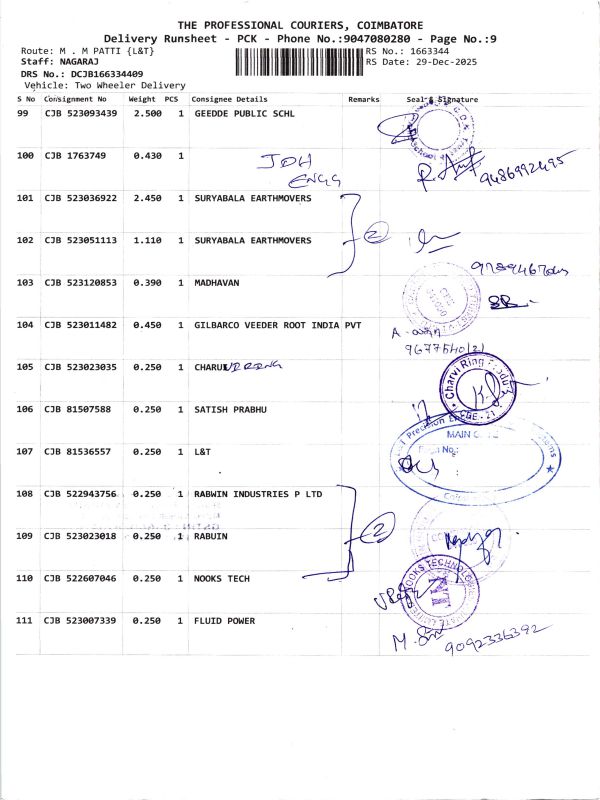 THE PROFESSIONAL COURIERS, COIMBATORE
Delivery Runsheet - PCK - Phone No.:9047080280 - Page No.:9
Route: M . M PATTI {L&T}
RS No.: 1663344
Staff: NAGARAJ
RS Date: 29-Dec-2025
DRS No.: DCJB166334409
Vehicle: Two Wheeler Delivery
S No Consignment No Weight PCS Consignee Details Remarks Seal & Signature
99 CJB 523093439 2.500 1 GEEDDE PUBLIC SCHL
100 CJB 1763749 0.430 1 JDH
ENGG
9486992495
101 CJB 523036922 2.450 1 SURYABALA EARTHMOVERS
2
102 CJB 523051113 1.110 1 SURYABALA EARTHMOVERS
103 CJB 523120853 0.390 1 MADHAVAN
104 CJB 523011482 0.450 1 GILBARCO VEEDER ROOT INDIA PVT
105 CJB 523023035 0.250 1
Charvi Ring
CBE - 21
106 CJB 81507588 0.250 1 SATISH PRABHU
Precision
MAIN
No.:
107 CJB 81536557 0.250 1 L&T
108 CJB 522943756 0.250 1 RABWIN INDUSTRIES P LTD
2
109 CJB 523023018 0.250 1 RABUIN
110 CJB 522607046 0.250 1 NOOKS TECH
NOOKS TECHNOLOGIES
111 CJB 523007339 0.250 1 FLUID POWER
9092336392